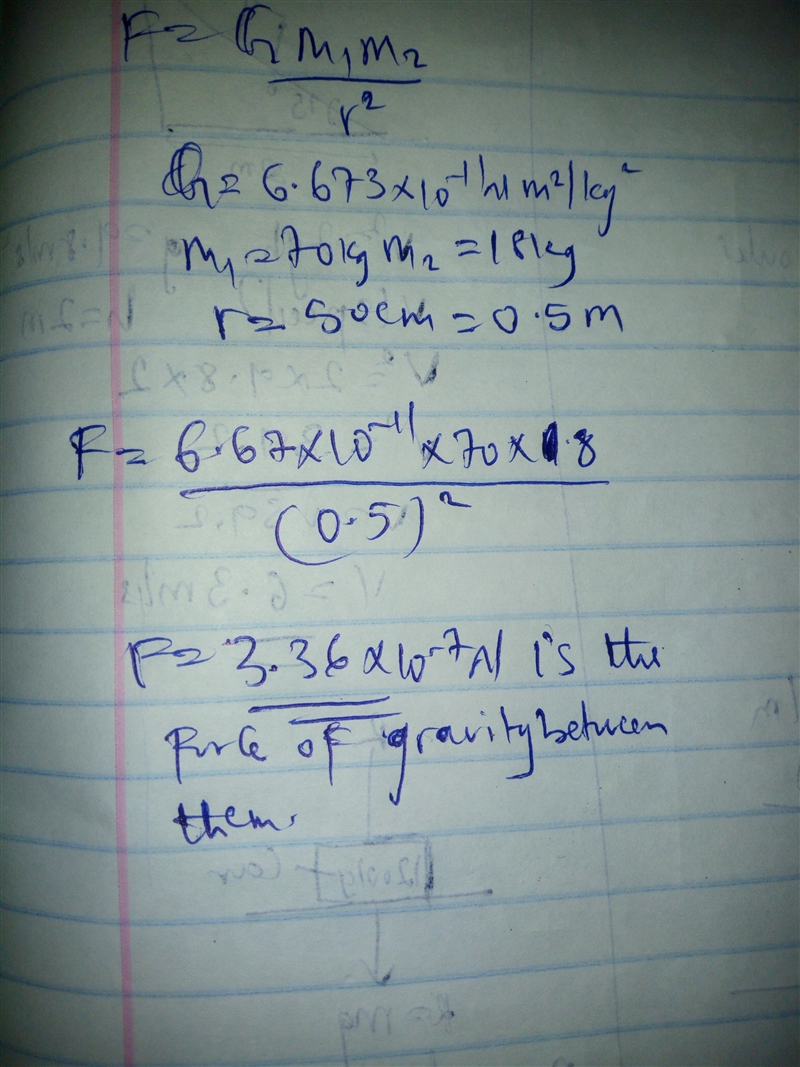 F = G m₁m₂
r²
G = 6.673×10⁻¹¹Nm²/kg²
m₁=70kg m₂=18kg
r = 50cm = 0.5m
F = 6.67×10⁻¹¹×70×1.8
(0.5)²
F = 3.36×10⁻⁷N is the
Force of gravity between
them.